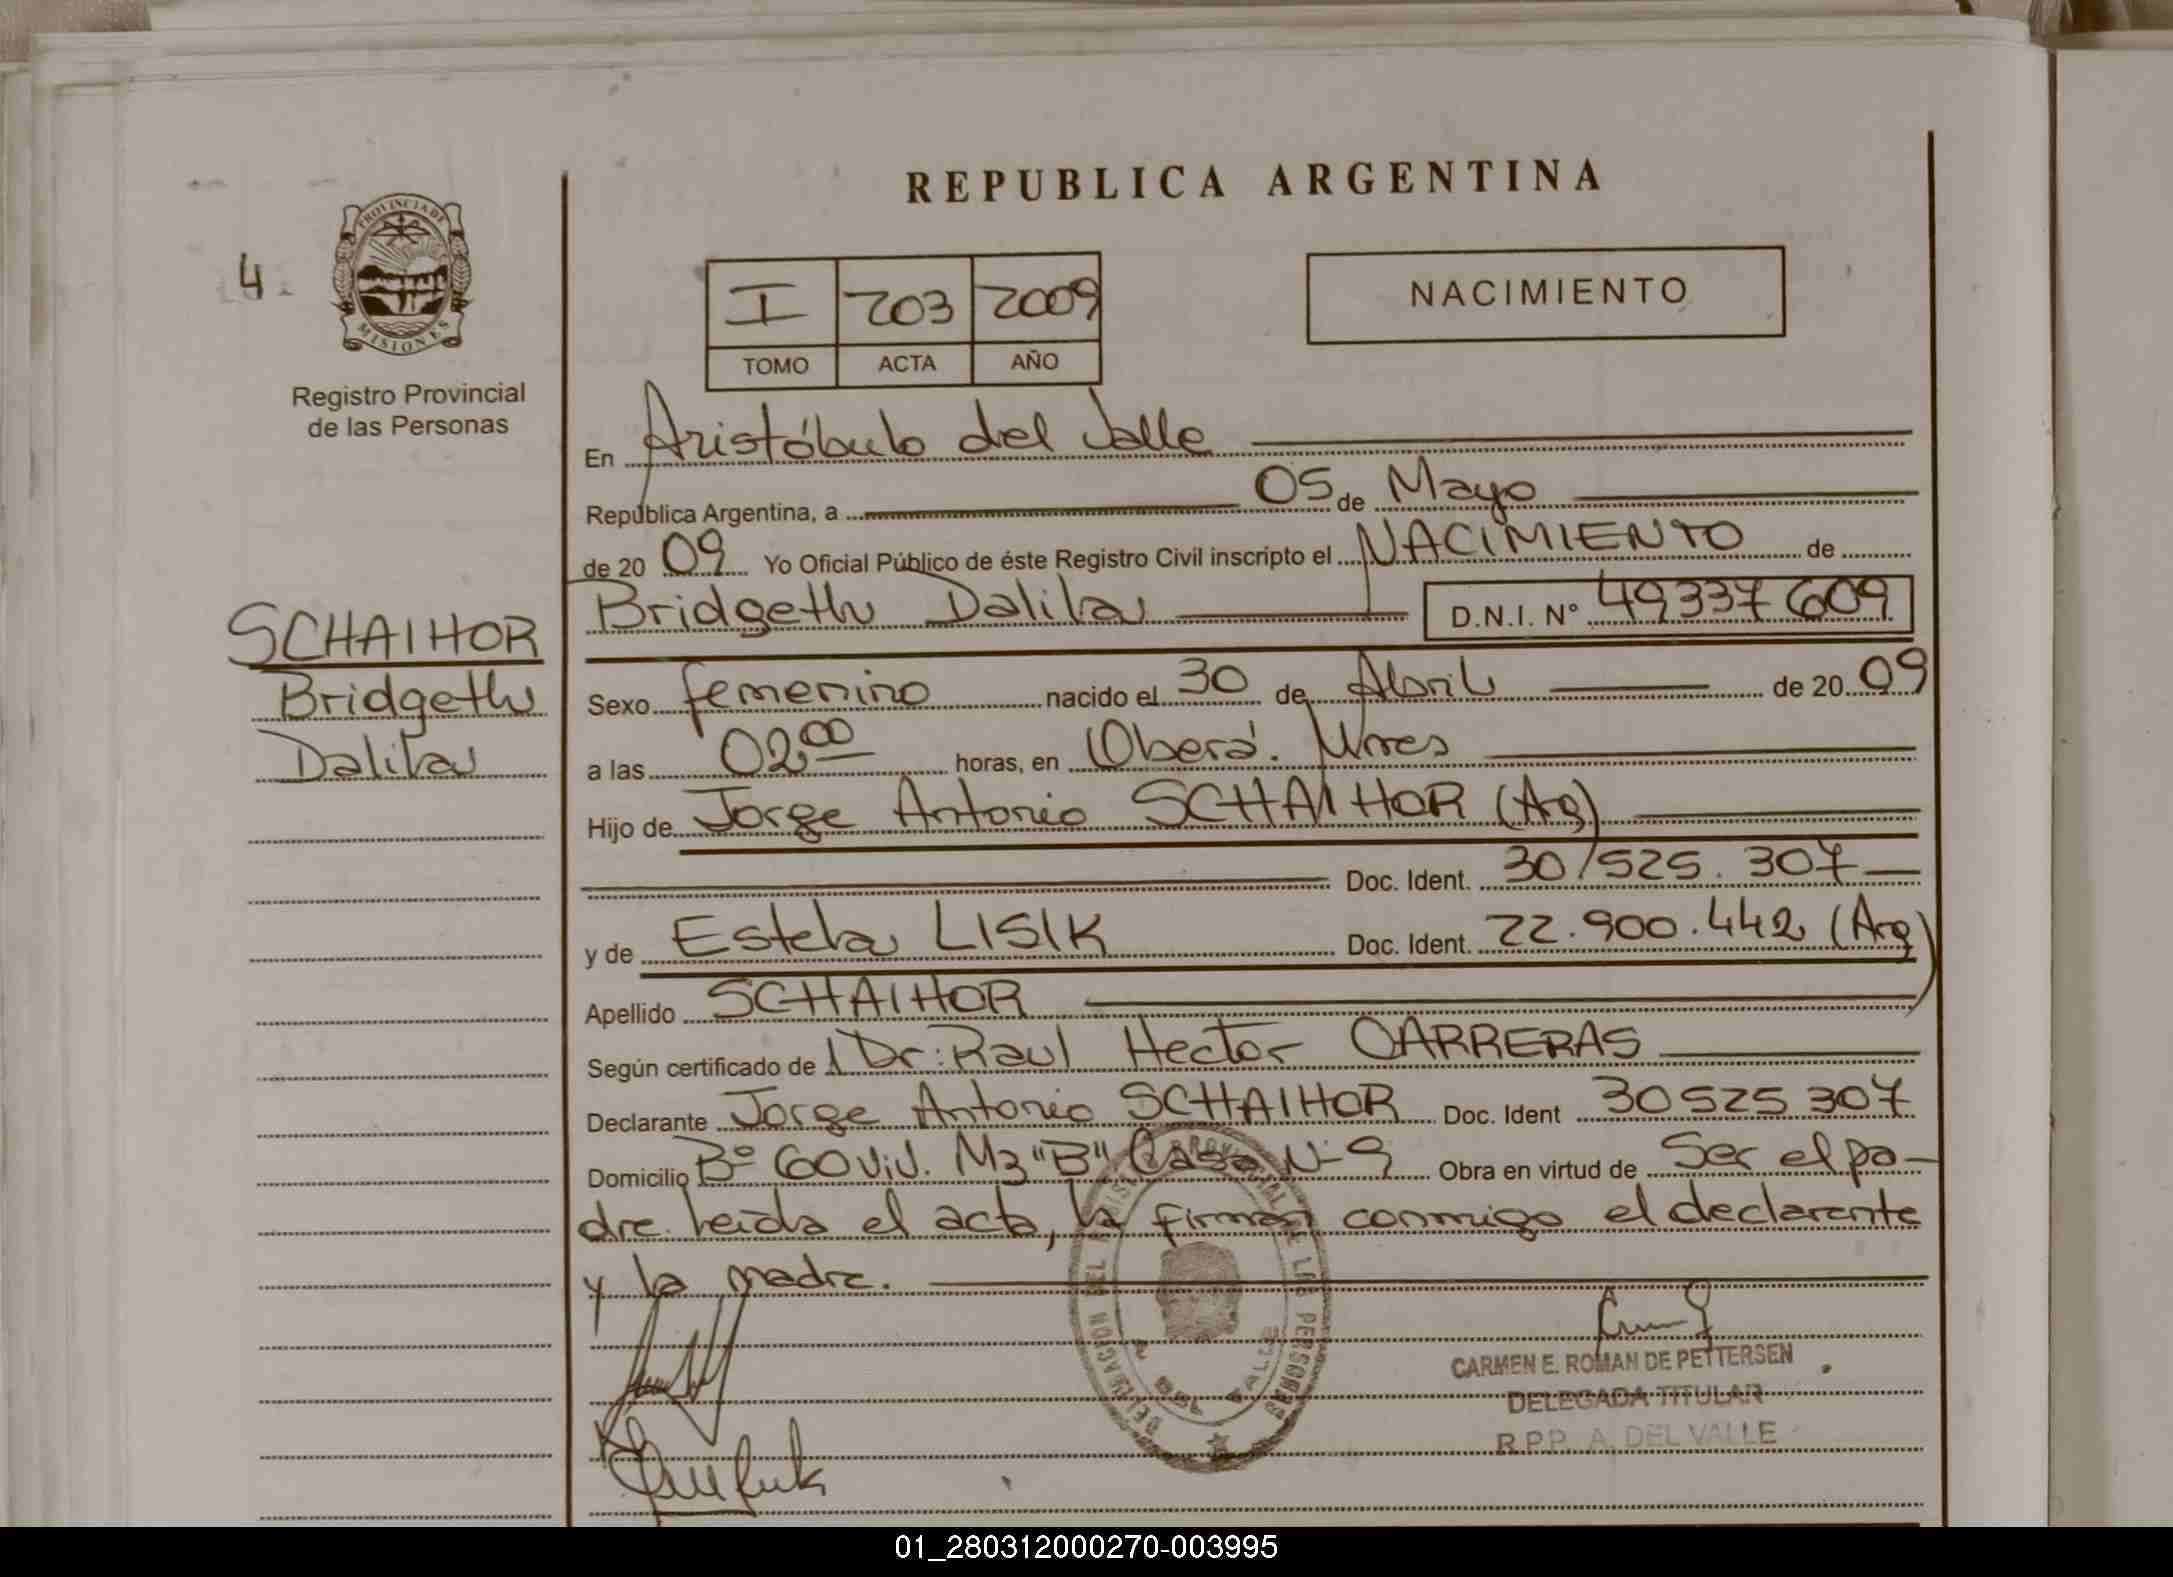 REPUBLICA ARGENTINA
PROVINCIA DE
MISIONES
4
Registro Provincial
de las Personas
I 203 2009
TOMO ACTA AÑO
NACIMIENTO
En Aristóbulo del Valle
República Argentina, a 05 de Mayo
de 20 09 Yo Oficial Público de éste Registro Civil inscripto el NACIMIENTO de
Bridgeth Dalila D.N.I. Nº 49337609
SCHAIHOR
Bridgeth
Dalila
Sexo femenino nacido el 30 de Abril de 20 09
a las 02.00 horas, en Oberá. Mnes
Hijo de Jorge Antonio SCHAIHOR (Arg)
Doc. Ident. 30/525.307
y de Estela LISIK Doc. Ident. 22.900.442 (Arg)
Apellido SCHAIHOR
Según certificado de Dr: Raul Hector CARRERAS
Declarante Jorge Antonio SCHAIHOR Doc. Ident 30525307
Domicilio Bº 60 viv. Mz "B" Casa Nº 9 Obra en virtud de Ser el pa-
dre. Leída el acta, la firman conmigo el declarante
y la madre.
CARMEN E. ROMAN DE PETTERSEN
DELEGADA TITULAR
R.P.P. A. DEL VALLE
01_280312000270-003995